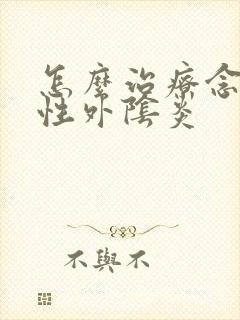 怎麼治療念
性外陰炎
不與不